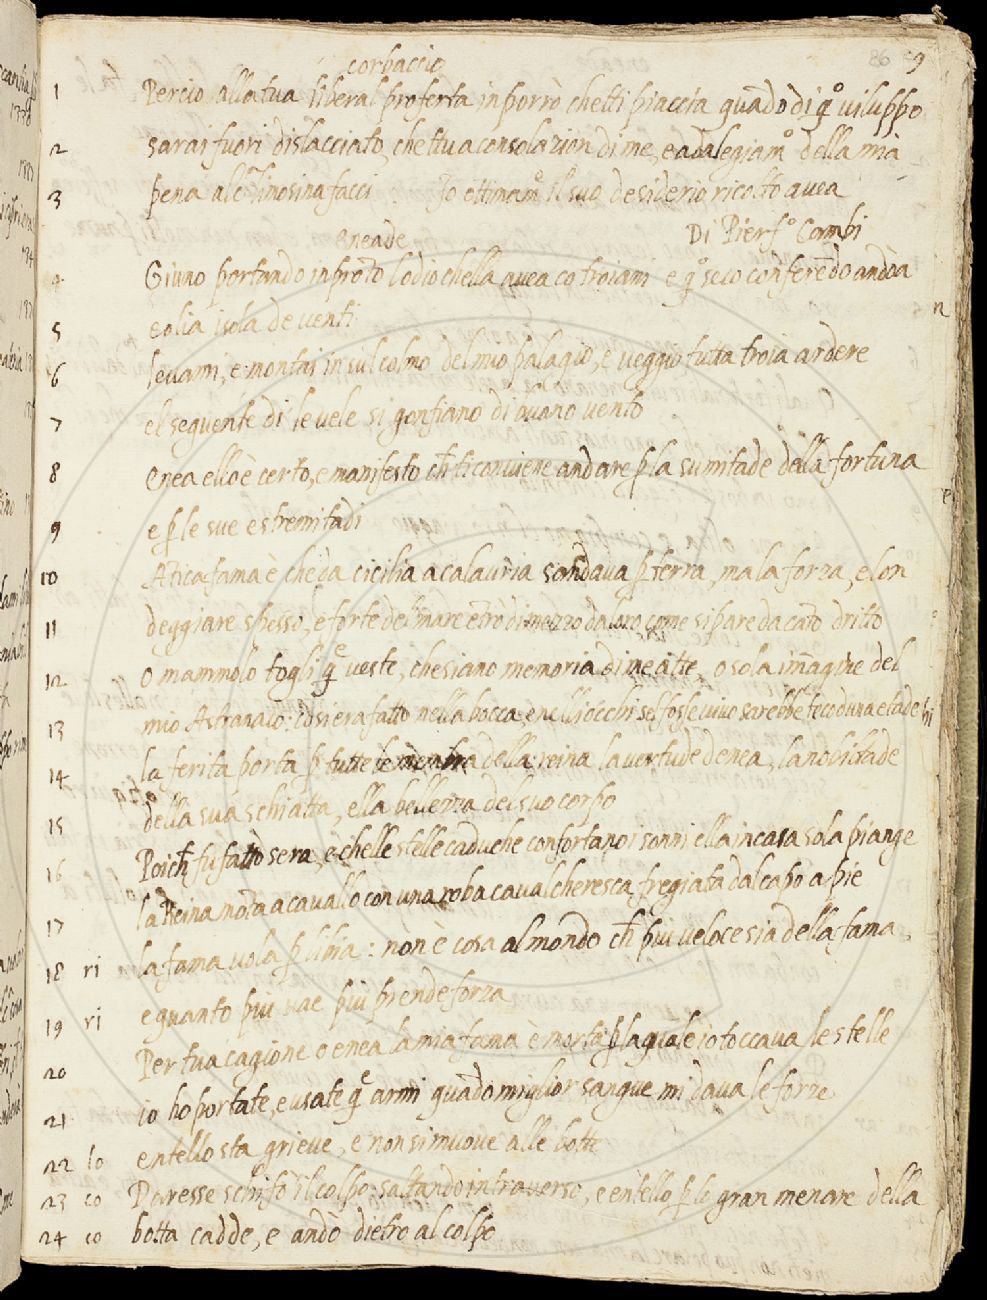 86 9
corbaccio
1 Percio alla tua liberal proferta in porrò chetti piaccia quãdo di q̃o viluppo
2 sarai fuori dislacciato, chettu a consolazion di me, e adalegiam.o della mia
3 pena alc̃ limosina facci Io ottimam.o il suo desiderio ricolto avea
eneade Di Pierf.o Cambi
4 Giuno portando in pronto lodio chella avea co troiani e q̃o seco conferẽdo andò a
5 eolia isola de venti
6 levami, e montai in sul colmo del mio palagio, e veggio tutta troia ardere
7 el seguente di le vele si gonfiano di buono vento
8 enea elloè certo, e manifesto ch̃ ti conviene andare p̱ la sumitade della fortuna
9 e p̱ le sue estremitadi
10 Atica fama è che da cicilia a calauria sandava p̱ terra, ma la forza, e lon
11 deggiare spesso, e forte del mare ẽtrò di mezzo da loro come si pare da cãto dritto
12 O mammolo togli q̃e veste, che siano memoria di me a tte, o sola im̃agine del
13 mio Astranatto: cosi era fatto nella bocca, e nelli occhi seffosse vivo sarebbe teco duna etade
14 la ferita porta p̱ tutte le membra della reina la vertude denea, la nobilitade
della sua schiatta, ella bellezza del suo corpo
15 Poich̃ fu fatto sera, e chelle stelle caduche confortano i sonni ella in casa sola piange
16 la Reina mõta a cavallo con una roba cavalcheresca fregiata dal capo a pie
17 la fama vola p̱ libia: non è cosa al mondo ch̃ piu veloce sia della fama,
18 ri e quanto piu vae piu prende forza
19 ri Per tua cagione o enea la mia fama è morta p̱ la quale io toccava le stelle
20 io ho portate, e usate q̃e armi quãdo miglior sangue mi dava le forze
21 entello sta grieve, e non si muove alle botte
22 lo Daresse schifò il colpo saltando in traverso, e ẽtello p̱ lo gran menare della
23 co botta cadde, e andò dietro al colpo
24 co